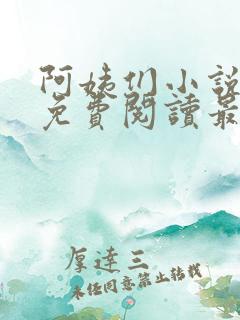 阿姨们小說
免費閱讀最
厚達三
未经同意禁止转载